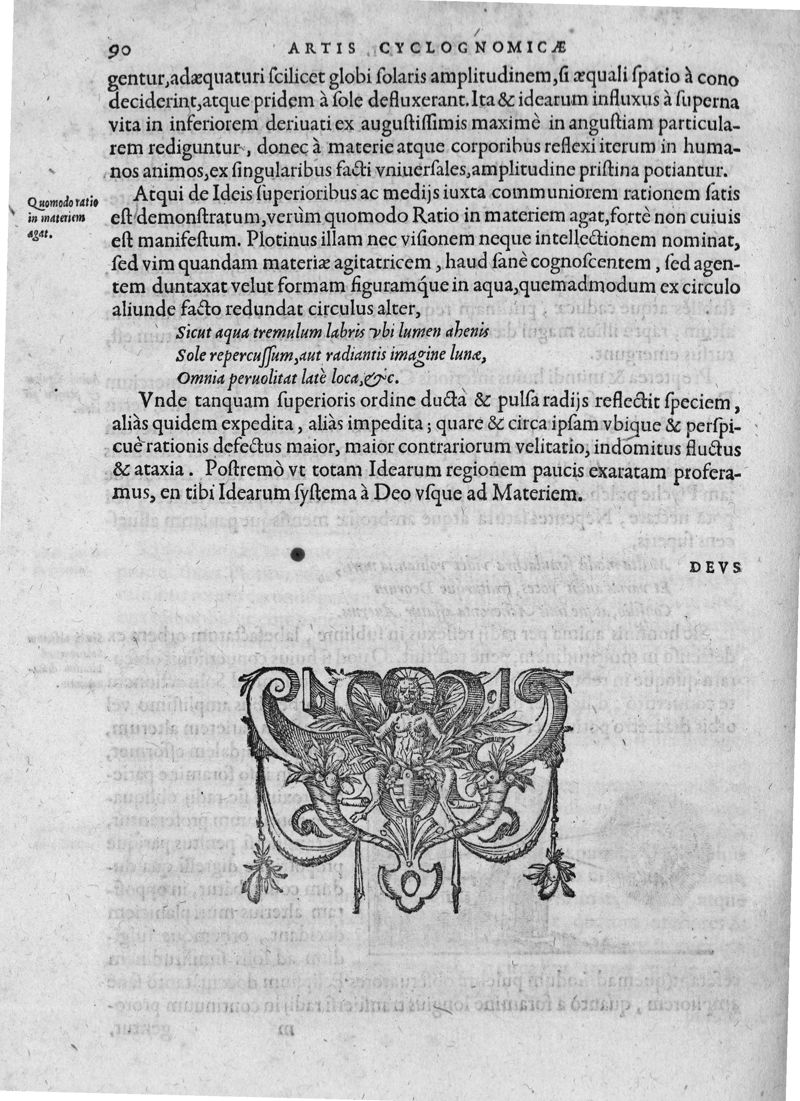 90 ARTIS CYCLOGNOMICÆ
gentur, adæquaturi ſcilicet globi ſolaris amplitudinem, ſi æquali ſpatio à cono
deciderint, atque pridem à ſole defluxerant. Ita & idearum influxus à ſuperna
vita in inferiorem deriuati ex auguſtiſſimis maximè in anguſtiam particula-
rem rediguntur, donec à materie atque corporibus reflexi iterum in huma-
nos animos, ex ſingularibus facti vniuerſales, amplitudine priſtina potiantur.
Quomodo ratio
in materiem
agat.
Atqui de Ideis ſuperioribus ac medijs iuxta communiorem rationem ſatis
eſt demonſtratum, verùm quomodo Ratio in materiem agat, fortè non cuiuis
eſt manifeſtum. Plotinus illam nec viſionem neque intellectionem nominat,
ſed vim quandam materiæ agitatricem, haud ſanè cognoſcentem, ſed agen-
tem duntaxat velut formam figuramq́ue in aqua, quemadmodum ex circulo
aliunde facto redundat circulus alter,
Sicut aqua tremulum labris vbi lumen ahenis
Sole repercuſſum, aut radiantis imagine lunæ,
Omnia peruolitat latè loca, &c.
Vnde tanquam ſuperioris ordine ducta & pulſa radijs reflectit ſpeciem,
aliàs quidem expedita, aliàs impedita; quare & circa ipſam vbique & perſpi-
cuè rationis defectus maior, maior contrariorum velitatio, indomitus fluctus
& ataxia. Poſtremò vt totam Idearum regionem paucis exaratam profera-
mus, en tibi Idearum ſyſtema à Deo vſque ad Materiem.
DEVS